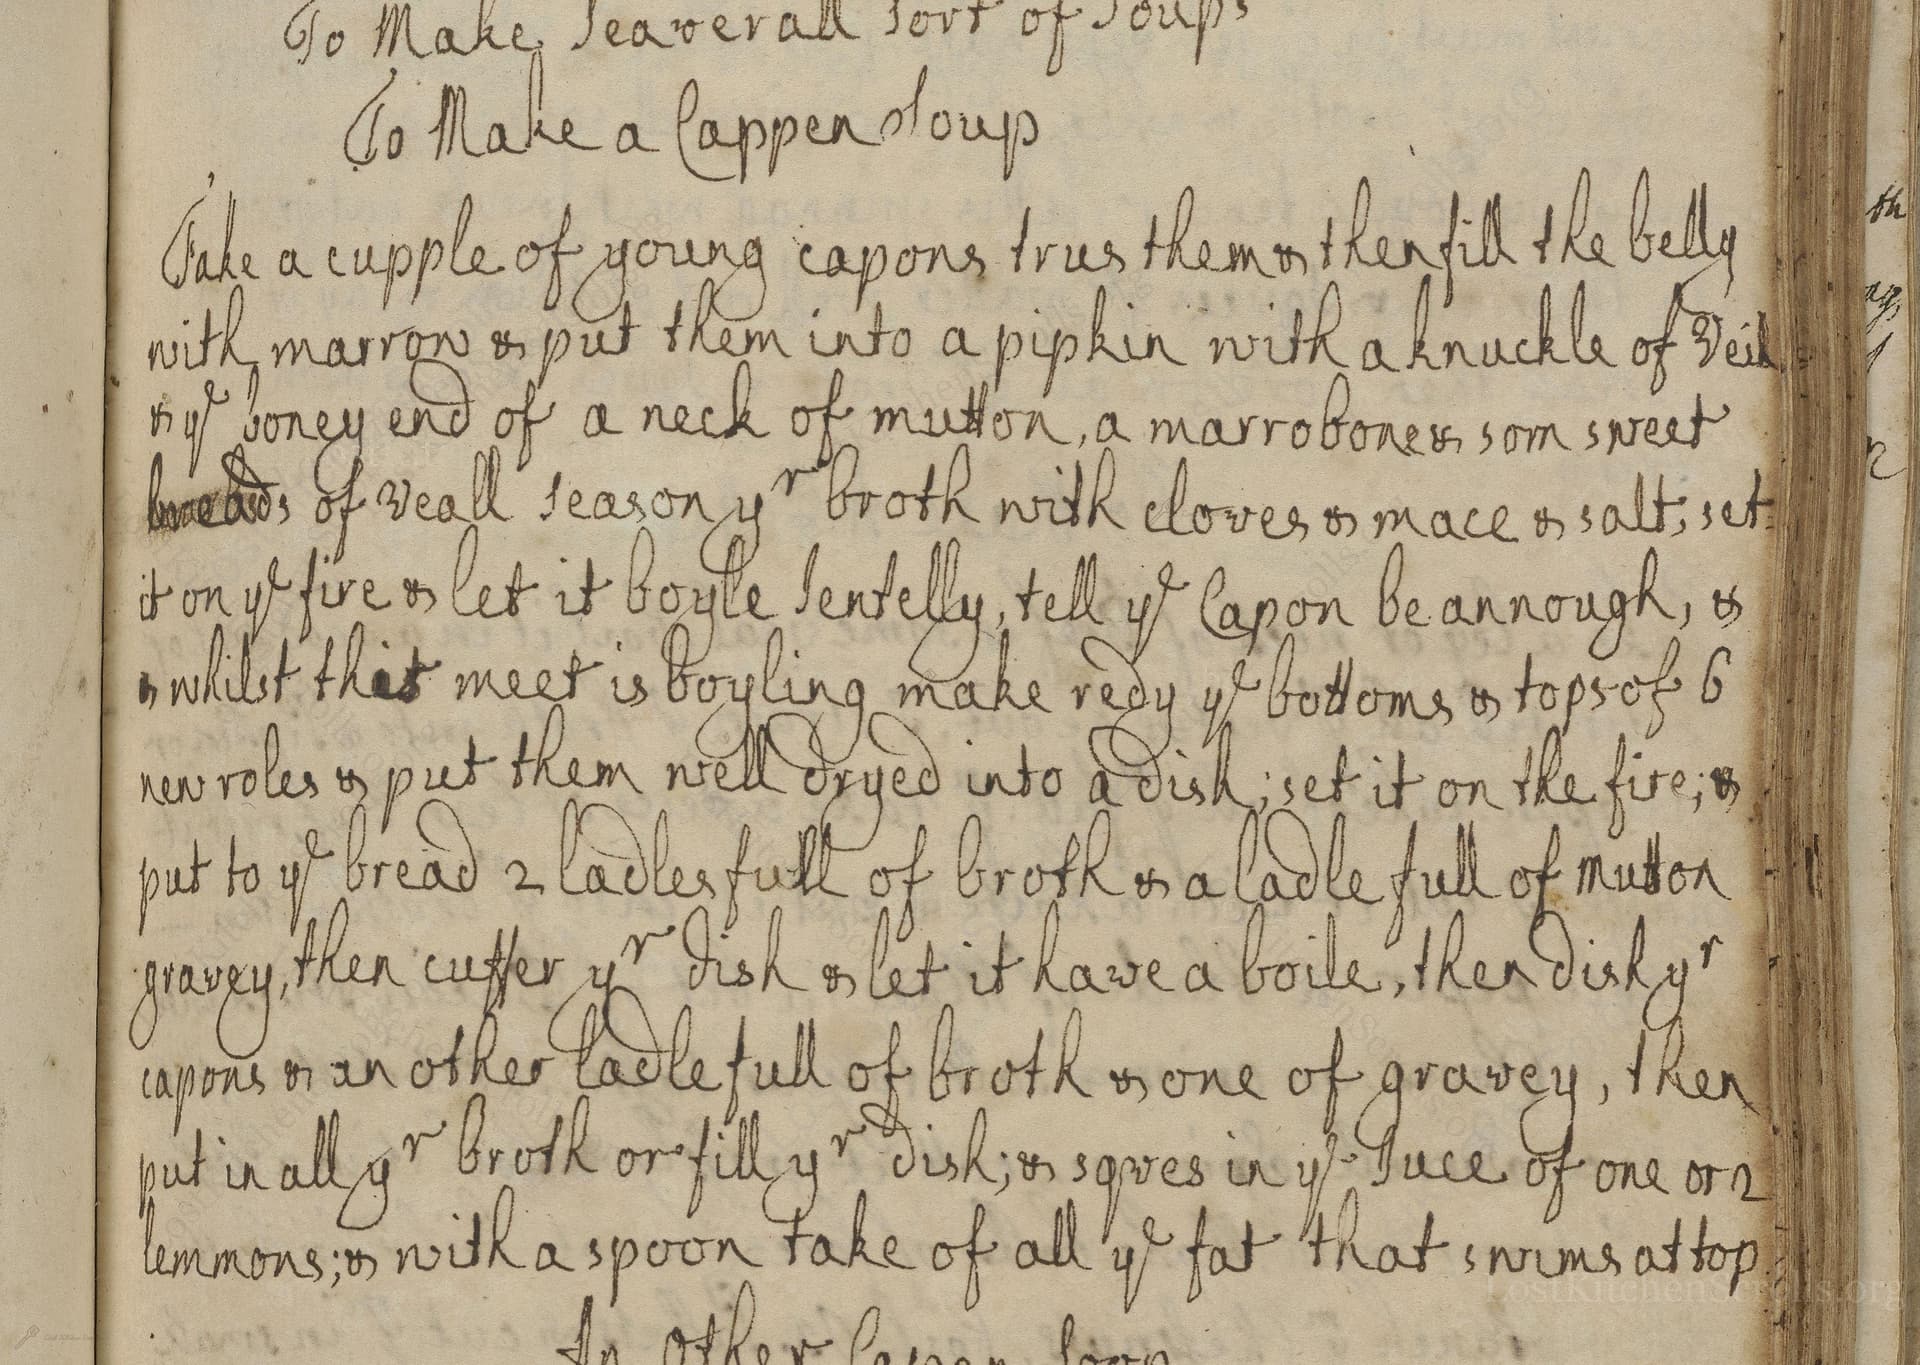 To Make Seaverall Sort of Soups
To Make a Cappen Soup
Take a cupple of young capons trus them & then fill the belly
with marrow & put them into a pipkin with a knuckle of Veil
& yᵉ boney end of a neck of mutton, a marrobone & som sweet
breads of veall season yʳ broth with cloves & mace & salt, set
it on yᵉ fire & let it boyle Jentelly, tell yᵉ Capon be annough, &
& whilst this meet is boyling make redy yᵉ bottoms & tops of 6
new roles & put them well dryed into a dish; set it on the fire; &
put to yᵉ bread 2 ladles full of broth & a ladle full of mutton
gravey, then cuffer yʳ dish & let it have a boile, then dish yʳ
capons & an other ladle full of broth & one of gravey, then
put in all yʳ broth or fill yʳ dish; & sqves in yᵉ Juce of one or 2
lemmons; & with a spoon take of all yᵉ fat that swims at top
An Other Capen Soop
th
LostKitchenScrolls.org